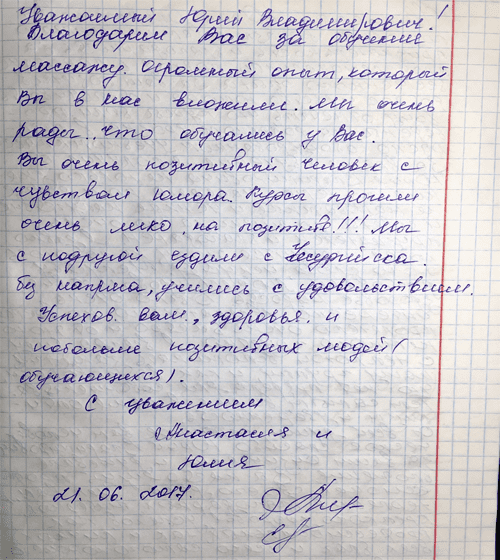 Уважаемый Юрий Владимирович!
Благодарим Вас за обучение
массажу. огромный опыт, который
Вы в нас вложили. Мы очень
рады., что обучались у Вас.
Вы очень позитивный человек с
чувством юмора. Курсы прошли
очень легко, на позитиве!!! Мы
с подругой ездили с Уссурийска.
без напряга, учились с удовольствием.
Успехов. вам., здоровья. и
побольше позитивных людей(
обучающихся).
С уважением
Анастасия и
Юлия
21. 06. 2017.